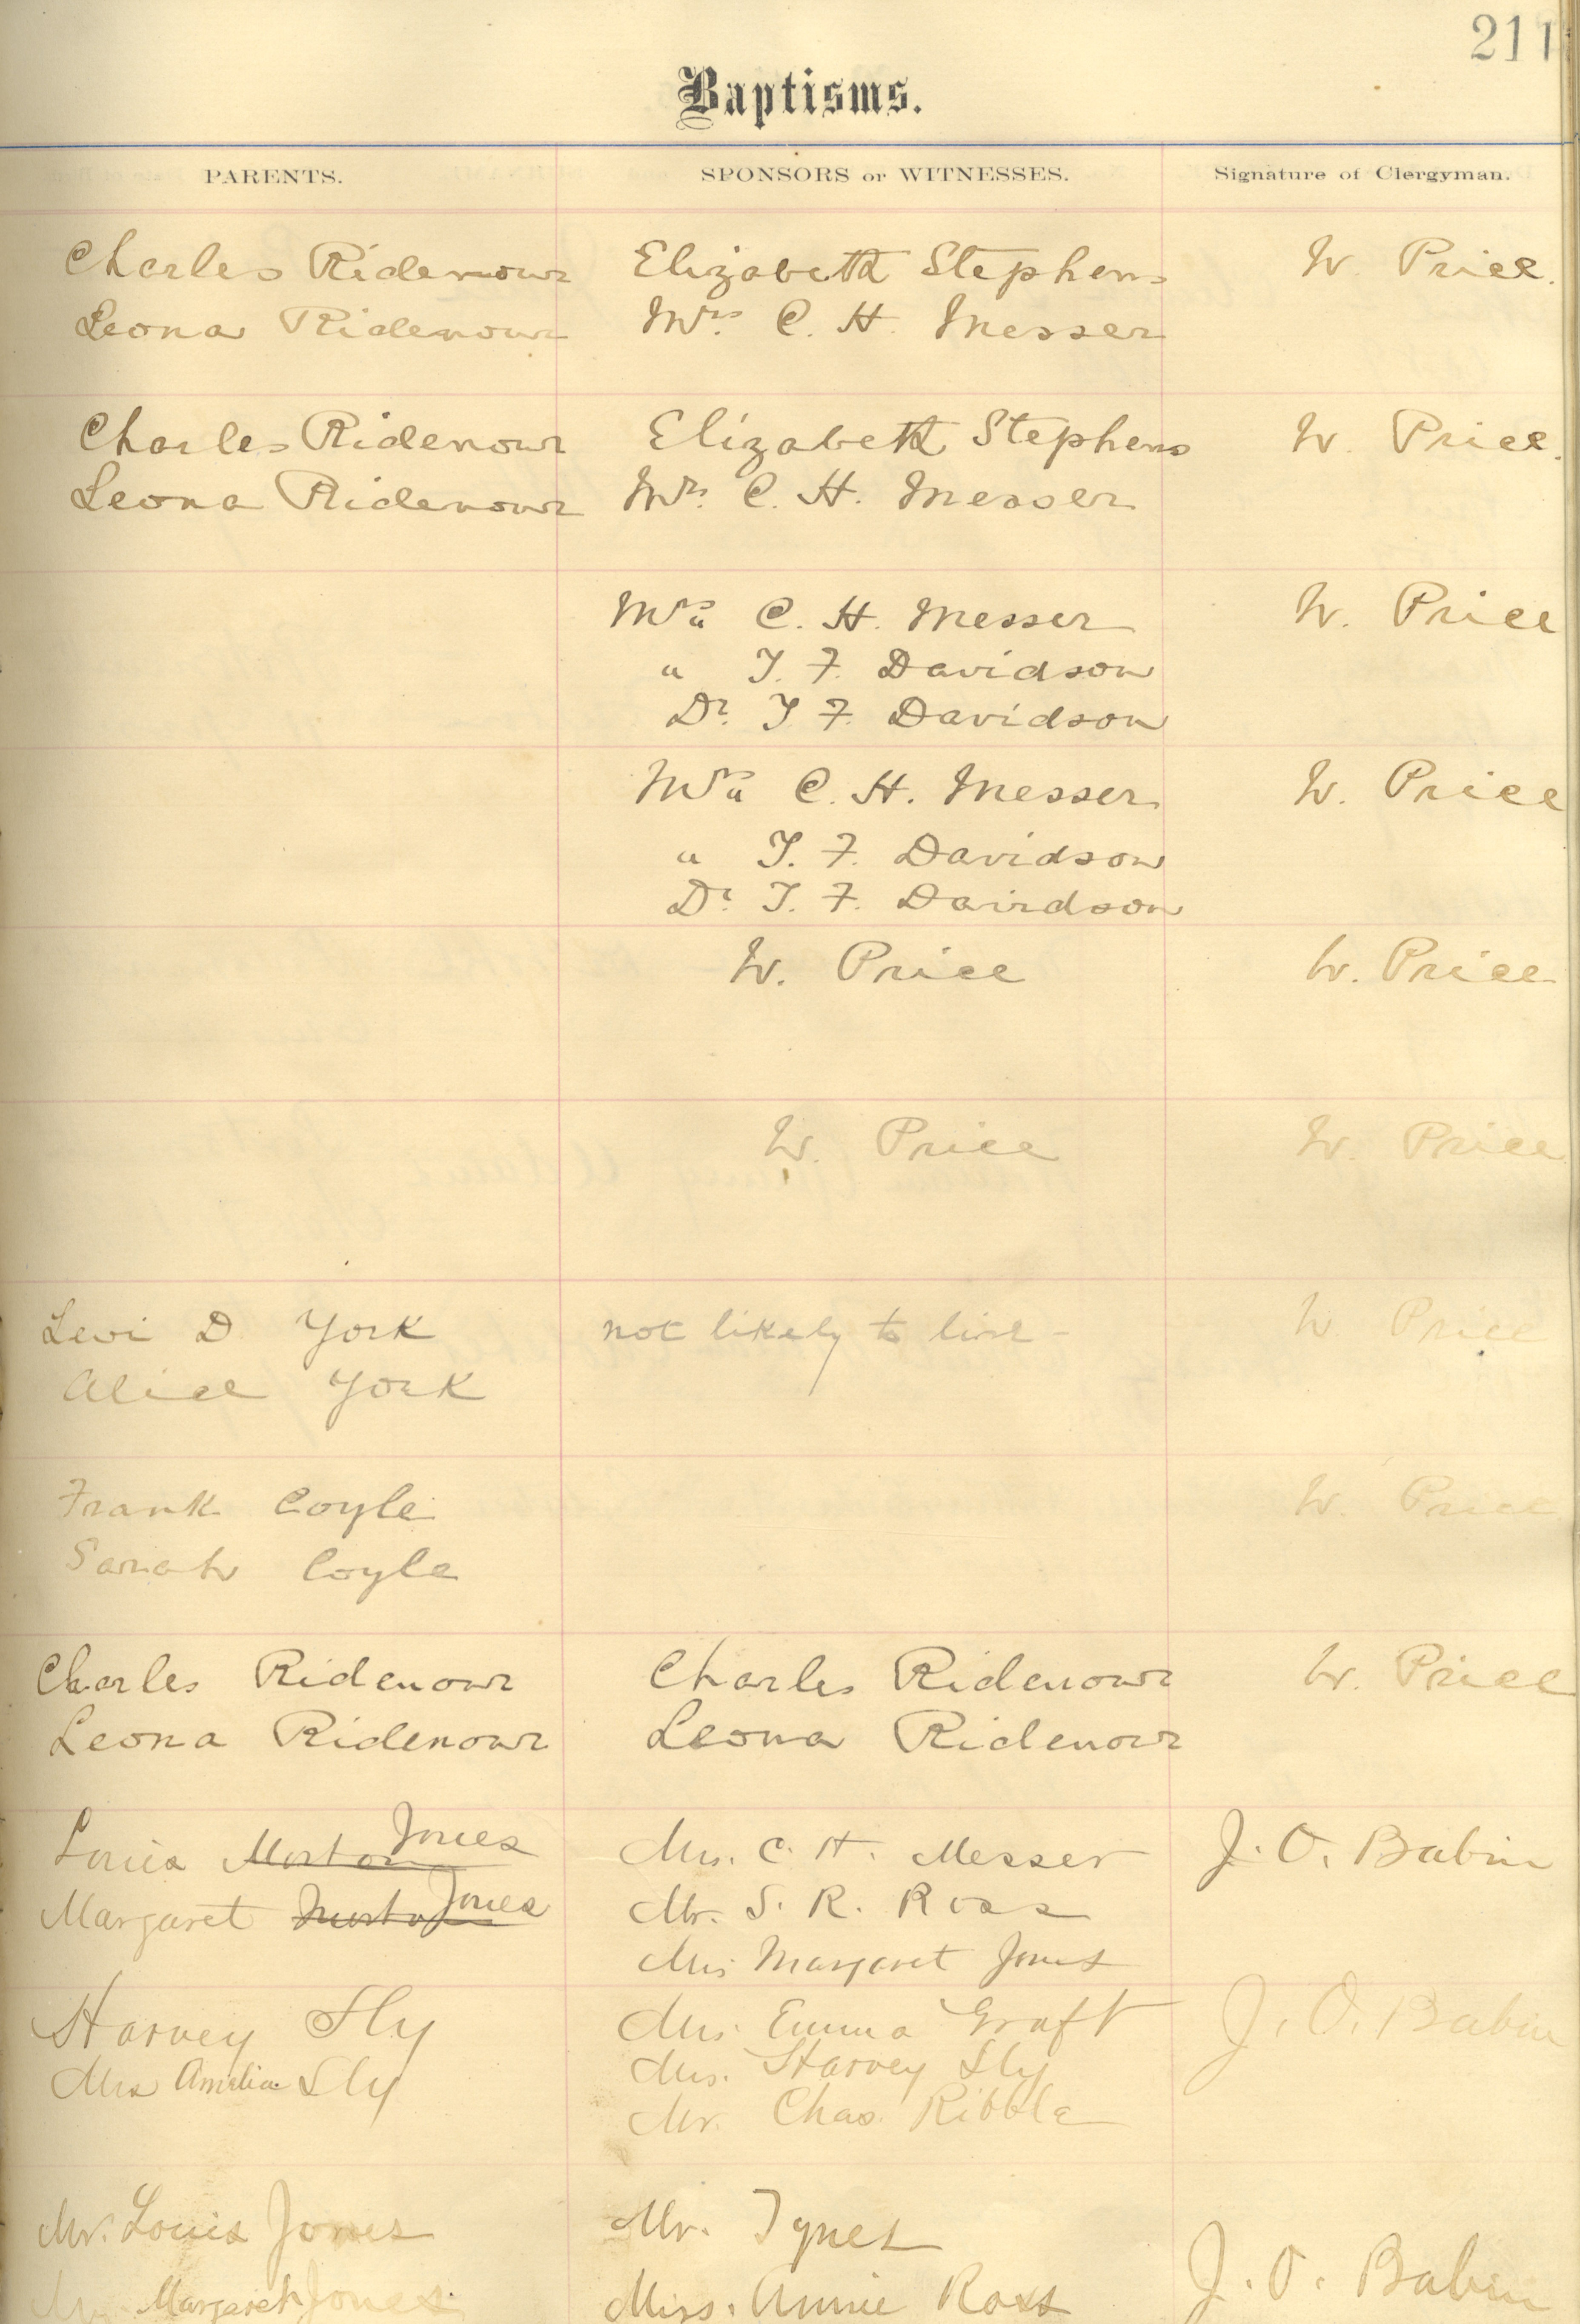 211
Baptisms.
PARENTS. SPONSORS or WITNESSES. Signature of Clergyman.
Charles Ridenour Elizabeth Stephens W. Price.
Leona Ridenour Mrs. C. H. Messer
Charles Ridenour Elizabeth Stephens W. Price.
Leona Ridenour Mrs. C. H. Messer
Mrs. C. H. Messer W. Price
" T. F. Davidson
Dr. T F. Davidson
Mrs. C. H. Messer W. Price
" T. F. Davidson
Dr. T. F. Davidson
W. Price W. Price
W. Price W. Price
Levi D. York not likely to live - W Price
Alice York
Frank Coyle W. Price
Sarah Coyle
Charles Ridenour Charles Ridenour W. Price
Leona Ridenour Leona Ridenour
Louis Morton Jones Mrs. C. H. Messer J. O. Babin
Margaret Jones Mr. S. R. Ross
Mrs Margaret Jones
Harvey Sly Mrs. Emma Graft J. O. Babin
Mrs Amelia Sly Mrs. Harvey Sly
Mr. Chas. Ribble
Mr. Louis Jones Mr. Tynes J. O. Babin
Margaret Jones Miss. Annie Ross